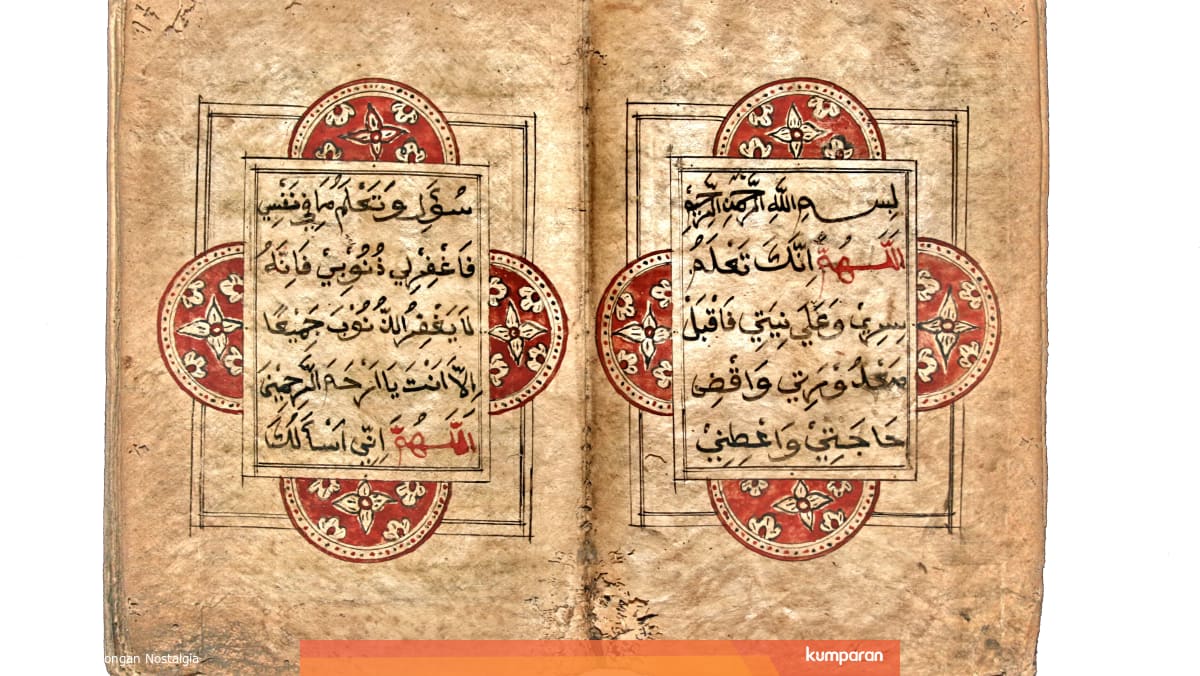 بِسْمِ اللَّهِ الرَّحْمٰنِ الرَّحِيْمِ
اَللّٰهُمَّ اِنَّكَ تَعْلَمُ
سِرِيْ وَعَلَى نِيَتِي فَاقْبَلْ
مَعْذُوْرَتِي وَاقْضِ
حَاجَتِيْ وَاعْطِنِيْ
سُؤَلِ وَتَعْلَمُ مَا فِي نَفْسِي
فَاغْفِرْلِي ذُنُوْبِيْ فَاِنَّهُ
لَا يَغْفِرُ الذُّنُوْبَ جَمِيْعًا
اِلَّا اَنْتَ يَا اَرْحَمَ الرَّحِمِيْنَ
اَللّٰهُمَّ اِنِّي اَسْأَلُكَ
ongan Nostalgia
kumparan